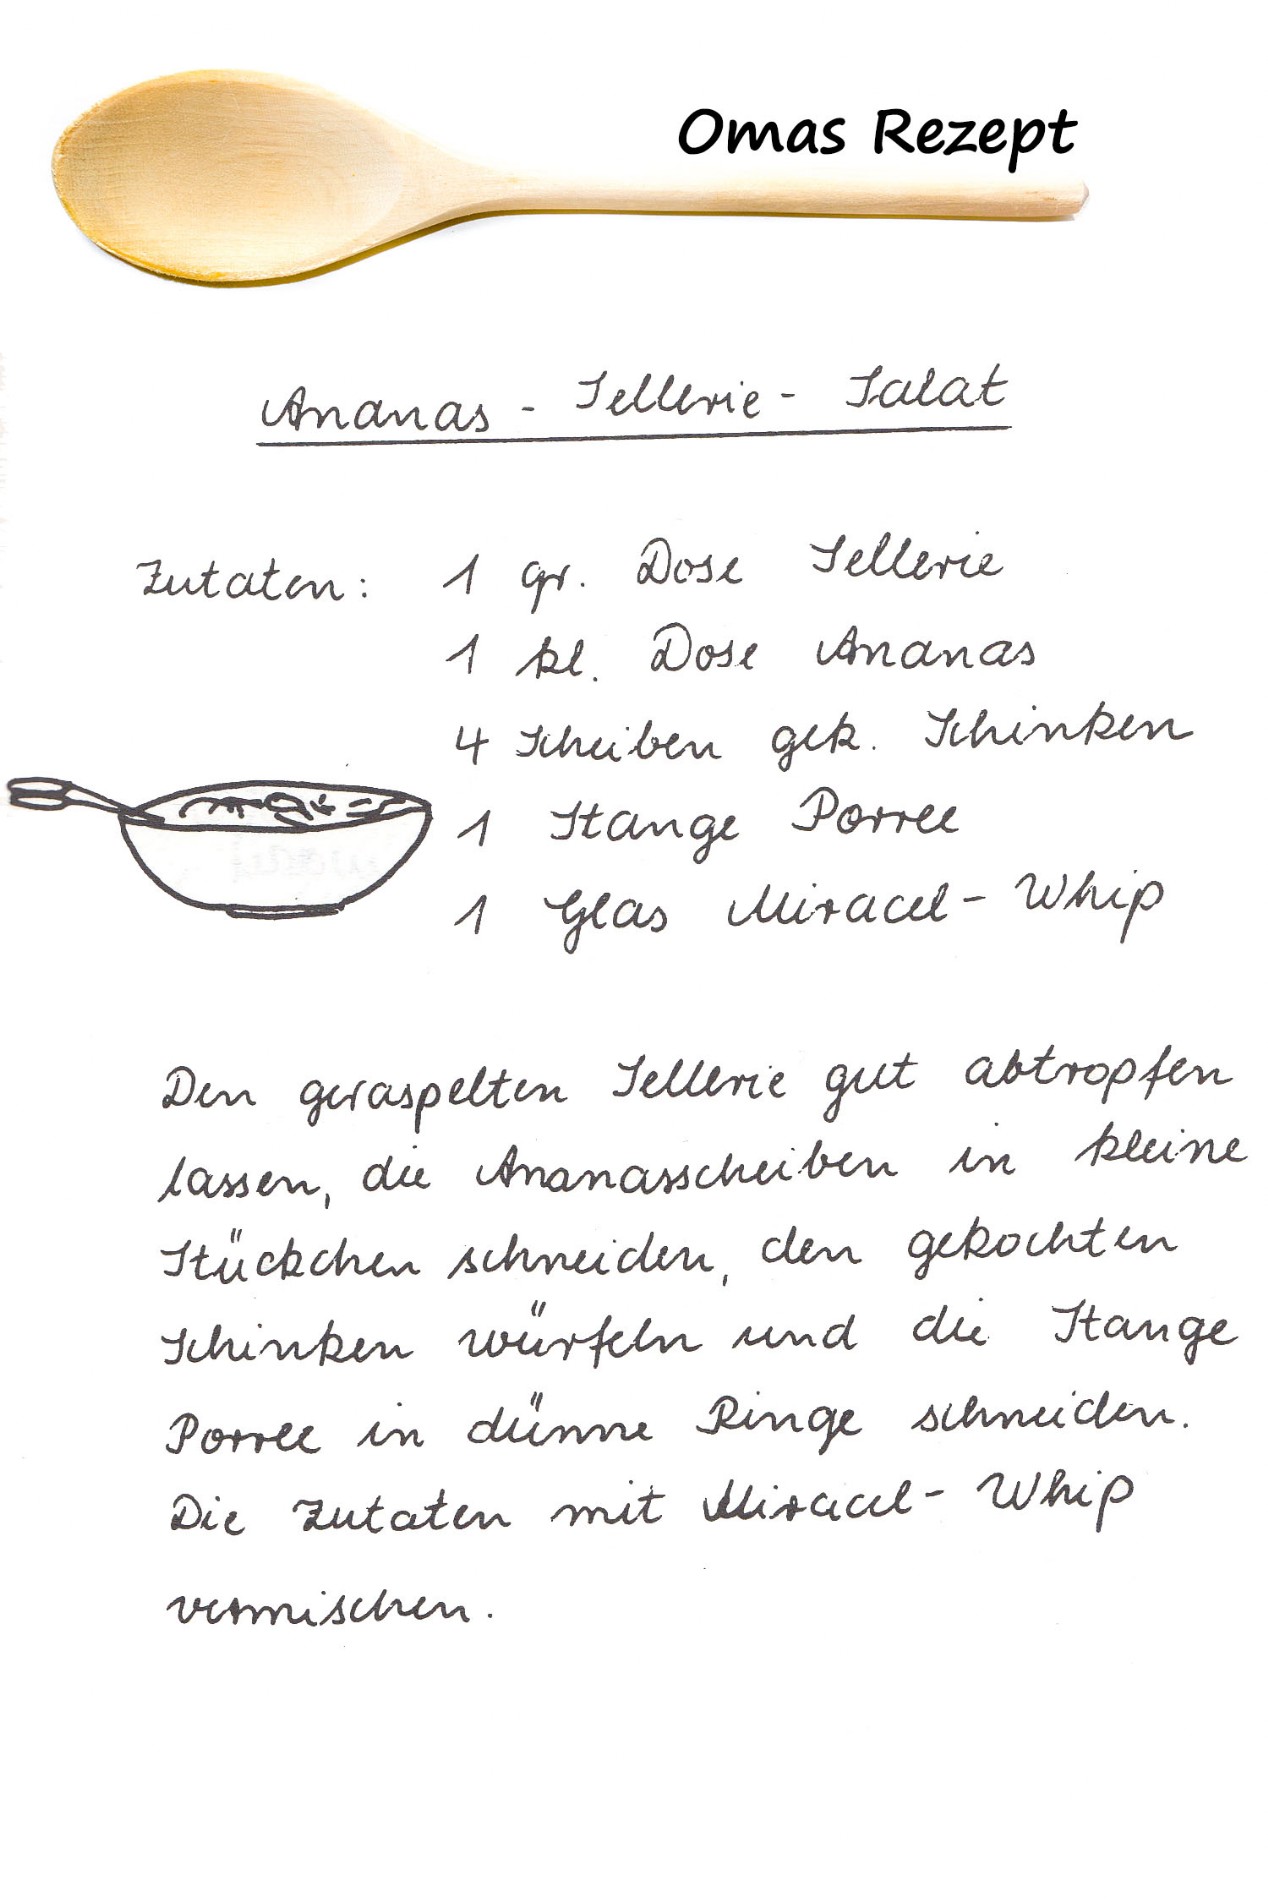 Omas Rezept
Ananas - Sellerie - Salat
Zutaten: 1 gr. Dose Sellerie
1 kl. Dose Ananas
4 Scheiben gek. Schinken
1 Stange Porree
1 Glas Miracel-Whip
Den geraspelten Sellerie gut abtropfen
lassen, die Ananasscheiben in kleine
Stückchen schneiden, den gekochten
Schinken würfeln und die Stange
Porree in dünne Ringe schneiden.
Die Zutaten mit Miracel-Whip
vermischen.